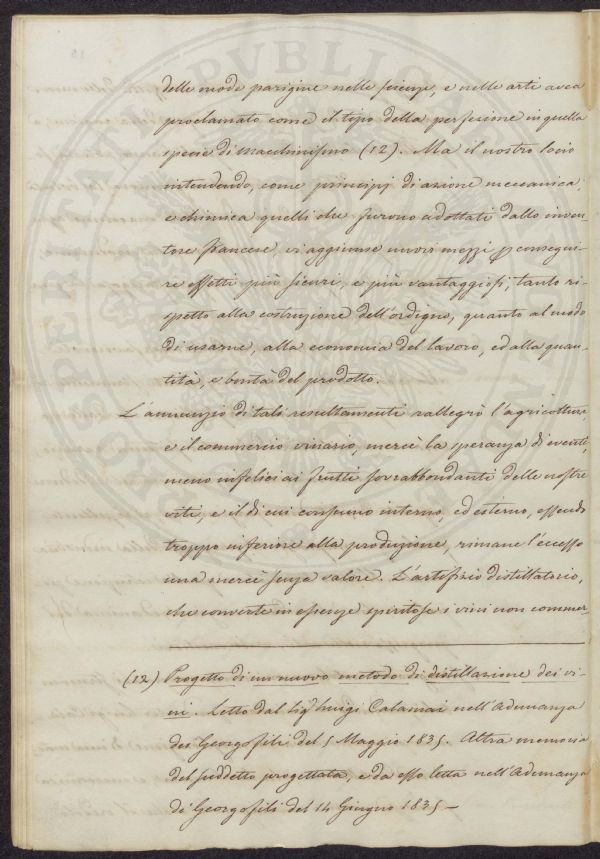 delle mode parigine nelle scienze, e nelle arti avea
proclamato come il tipo della perfezione in quella
specie di macchinismo (12). Ma il nostro Socio
intendendo, come principj di azione meccanica,
e chimica quelli che furono adottati dallo inven-
tore francese, vi aggiunse nuovi mezzi p consegui-
re effetti più sicuri, e più vantaggiosi, tanto ri-
spetto alla costruzione dell'ordigno, quanto al modo
di usarne, alla economia del lavoro, ed alla quan-
tità, e bontà del prodotto.
L'annunzio di tali resultamenti rallegrò l'agricoltura,
e il commercio vinario, mercè la speranza di eventi,
meno infelici ai frutti sovrabbondanti delle nostre
viti, e il di cui consumo interno, ed esterno, essendo
troppo inferiore alla produzione, rimane l'eccesso
una merce senza valore. L'artifizio distillatorio,
che converte in essenze spiritose i vini non commer-
(12) Progetto di un nuovo metodo di distillazione dei vi-
ni. Letto dal Sig. Luigi Calamai nell'Adunanza
dei Georgofili del 5 Maggio 1835. Altra memoria
del suddetto progettata, e da esso letta nell'Adunanza
dẽ Georgofili del 14 Giugno 1835 —
PROSPERITATI PVBLICAE